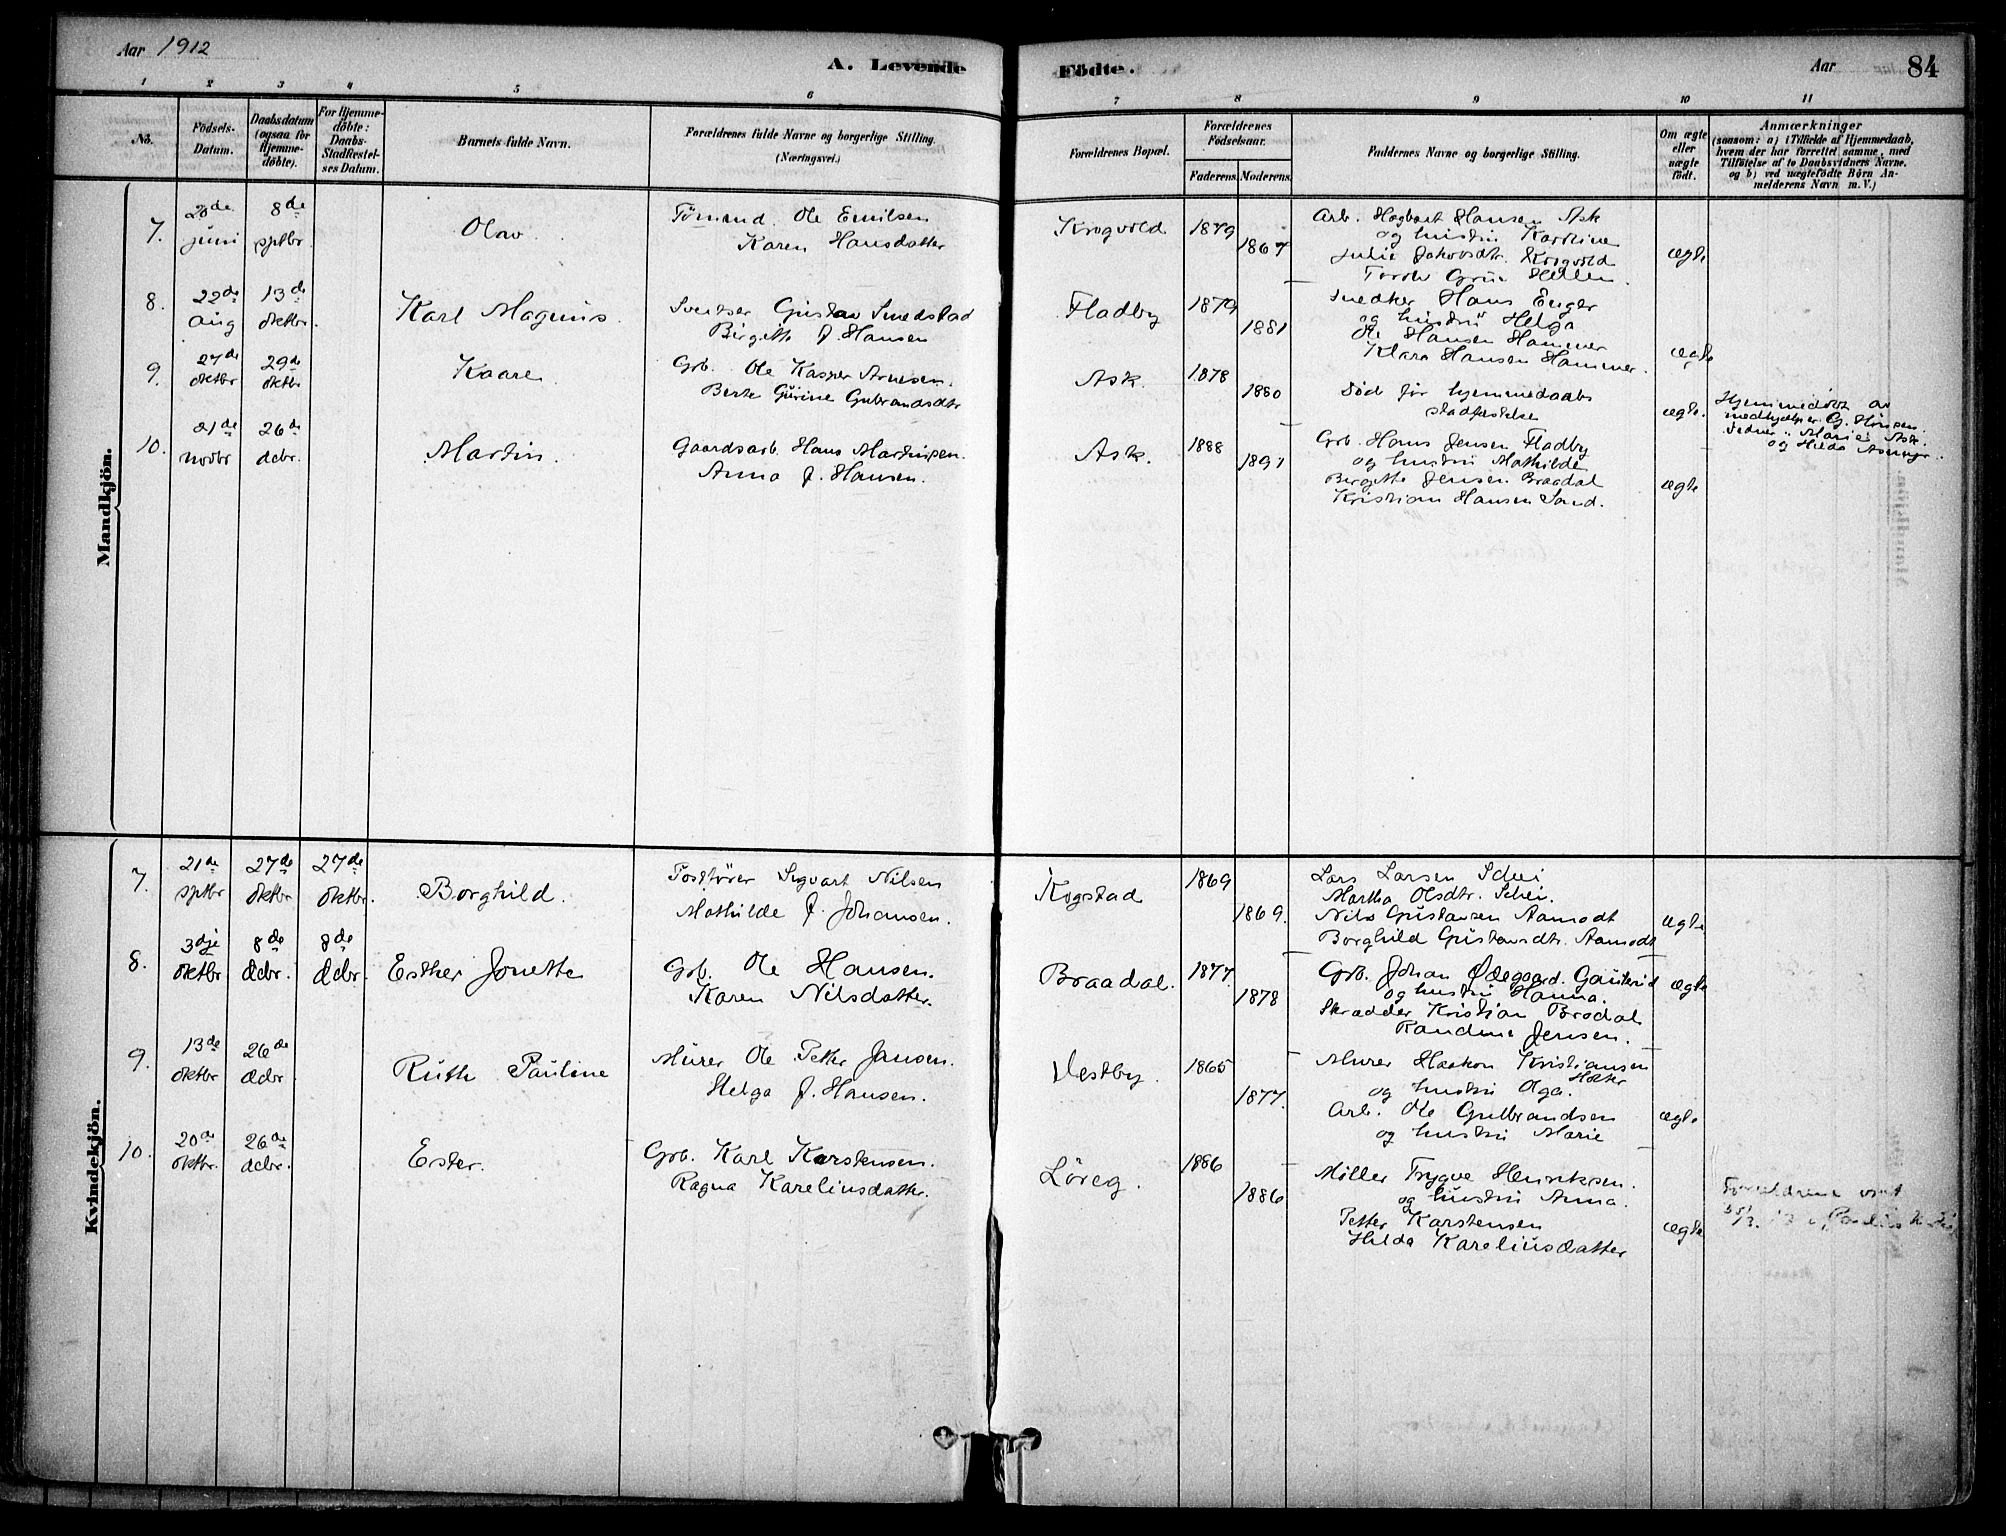 Aar 1912
A. Levende Födte.
Aar
84
1 2 3 4 5 6 7 8 9 10 11
No.
Födsels-Datum.
Daabsdatum (ogsaa for Hjemmedöbte).
For Hjemmedöbte: Daabs-Stadfæstelses Datum.
Barnets fulde Navn.
Forældrenes fulde Navne og borgerlige Stilling. (Næringsvei.)
Forældrenes Bopæl.
Forældrenes Födselsaar.
Faderens. Moderens.
Faddernes Navne og borgerlige Stilling.
Om ægte eller uægte födt.
Anmærkninger
(saasom: a) i Tilfælde af Hjemmedaab, hvem der har forrettet samme, med Tilföielse af to Daabsvidners Navne, og b) ved uægtefödte Börn Anmelderens Navn m. V.)
Mandkjön.
7. 20de juni 8de sptbr. Olav.
Tømmd. Ole Emilsen
Karen Hansdatter
Krogvold 1879 1867
Arb. Hagbart Hansen Ask
og hustru Karoline
Julie Jakobsdtr. Krogvold
ægte
8. 22de aug 13de oktbr. Karl Magnus.
Sveitser Gustav Smedstad
Birgitte f. Hansen
Fladby 1879 1881
Snedker Hans Enger
og hustru Helga
Ole Hansen Hammer
Klara Hansen Hammer.
ægte
9. 27de oktbr 29de oktbr Kaare.
Grb. Ole Kasper Arnesen.
Berte Gurine Gulbrandsdtr
Ask. 1878 1880
Død før hjemmedaabs
stadfæstelse
ægte.
Hjemmedøbt av
medhjælper G. Hansen.
Vidner: Marie Ask.
og Hilda
10. 21de novbr 26de dcbr. Martin.
Gaardsarb. Hans Martinsen.
Anna f. Hansen.
Ask. 1888 1891
Grb. Hans Jensen Fladby
og hustru Mathilde
Birgitte Jensen Braadal
Kristian Hansen Sand.
ægte
Kvindekjön.
7. 21de sptbr 27de oktbr 27de oktbr. Borghild.
Postfører Sigvart Nilsen
Mathilde f. Johansen.
Kogstad 1869 1869.
Lars Larsen Schei
Martha Olsdtr. Schei.
Nils Gustavsen Aamodt
Borghild Gustavsdtr. Aamodt
ægte
8. 3dje oktbr 8de dcbr. 8de dcbr. Esther Jonette
Grb. Ole Hansen.
Karen Nilsdatter.
Braadal. 1877. 1878
Grb. Johan Ødegaard.
og hustru Hanna.
Skrædder Kristian Brodal
Randine Jensen.
ægte
9. 13de oktbr 26de dcbr. Ruth Pauline
Murer Ole Petter Jansen.
Helga f. Hansen.
Vestby. 1865 1877.
Murer Haakon Kristiansen
og hustru Olga. Holter
Arb. Ole Gulbrandsen
og hustru Marie
ægte
10. 20de oktbr. 26de dcbr. Ester.
Grb. Karl Karstensen.
Ragna Kareliusdatter.
Løreg. 1886 1886
Møller Trygve Henriksen.
og hustru Anna.
Petter Karstensen
Hilda Kareliusdatter
ægte
Forældrene viet